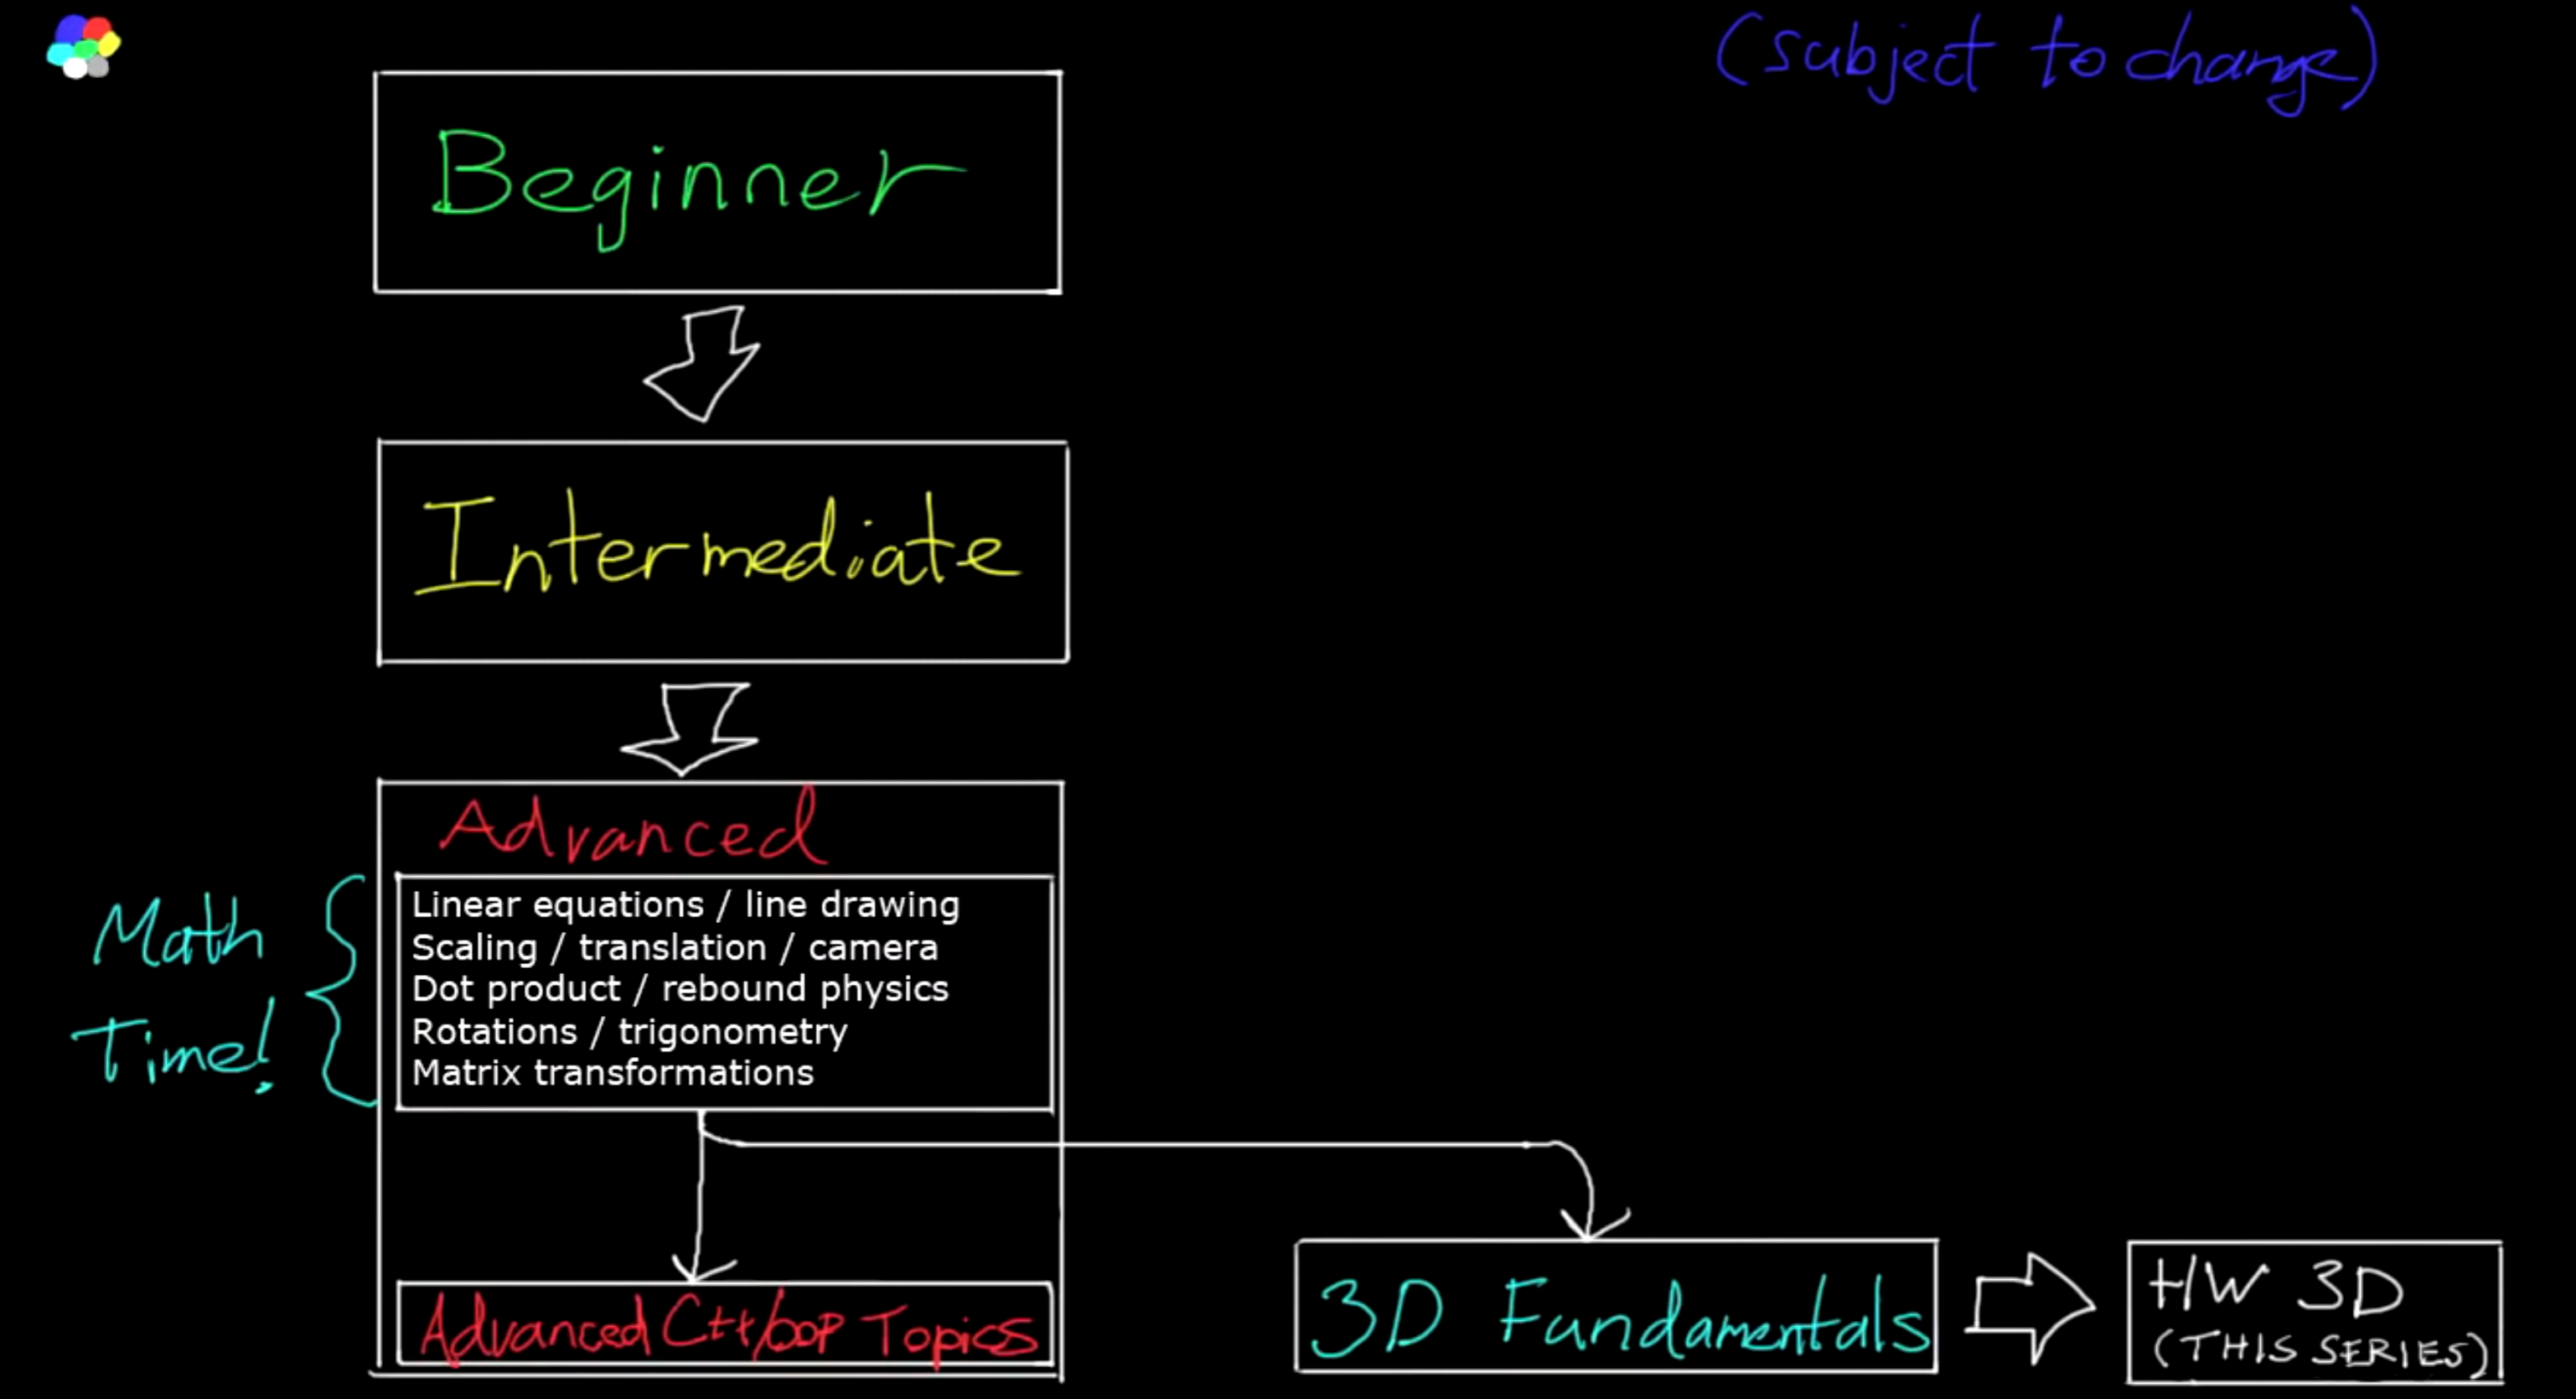 (subject to change)
Beginner
Intermediate
Advanced
Math
Time!
Linear equations / line drawing
Scaling / translation / camera
Dot product / rebound physics
Rotations / trigonometry
Matrix transformations
Advanced C++/oop Topics
3D Fundamentals
HW 3D
(THIS SERIES)